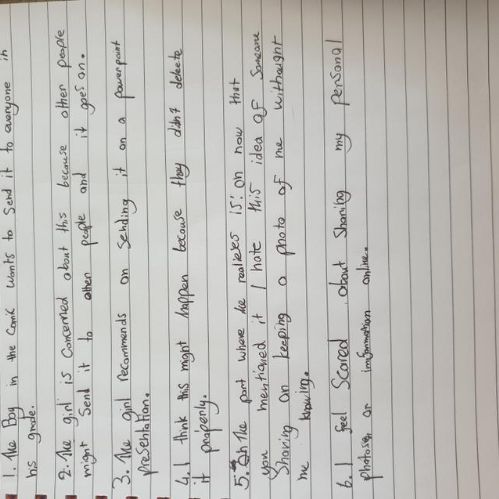 1. The Boy in the Comic wants to Send it to everyone in
his grade.
2. The girl is Concerned about this because other people
might Send it to other people and it goes on.
3. The girl recommends on Sending it on a powerpoint
presentation.
4. I think this might happen because they didn't delete
it properly.
5. The part where he realises is: oh now that
you mentioned it I hate this idea of Someone
Sharing or keeping a photo of me withought
me knowing.
6. I feel Scared about Sharing my personal
photoes or information online.